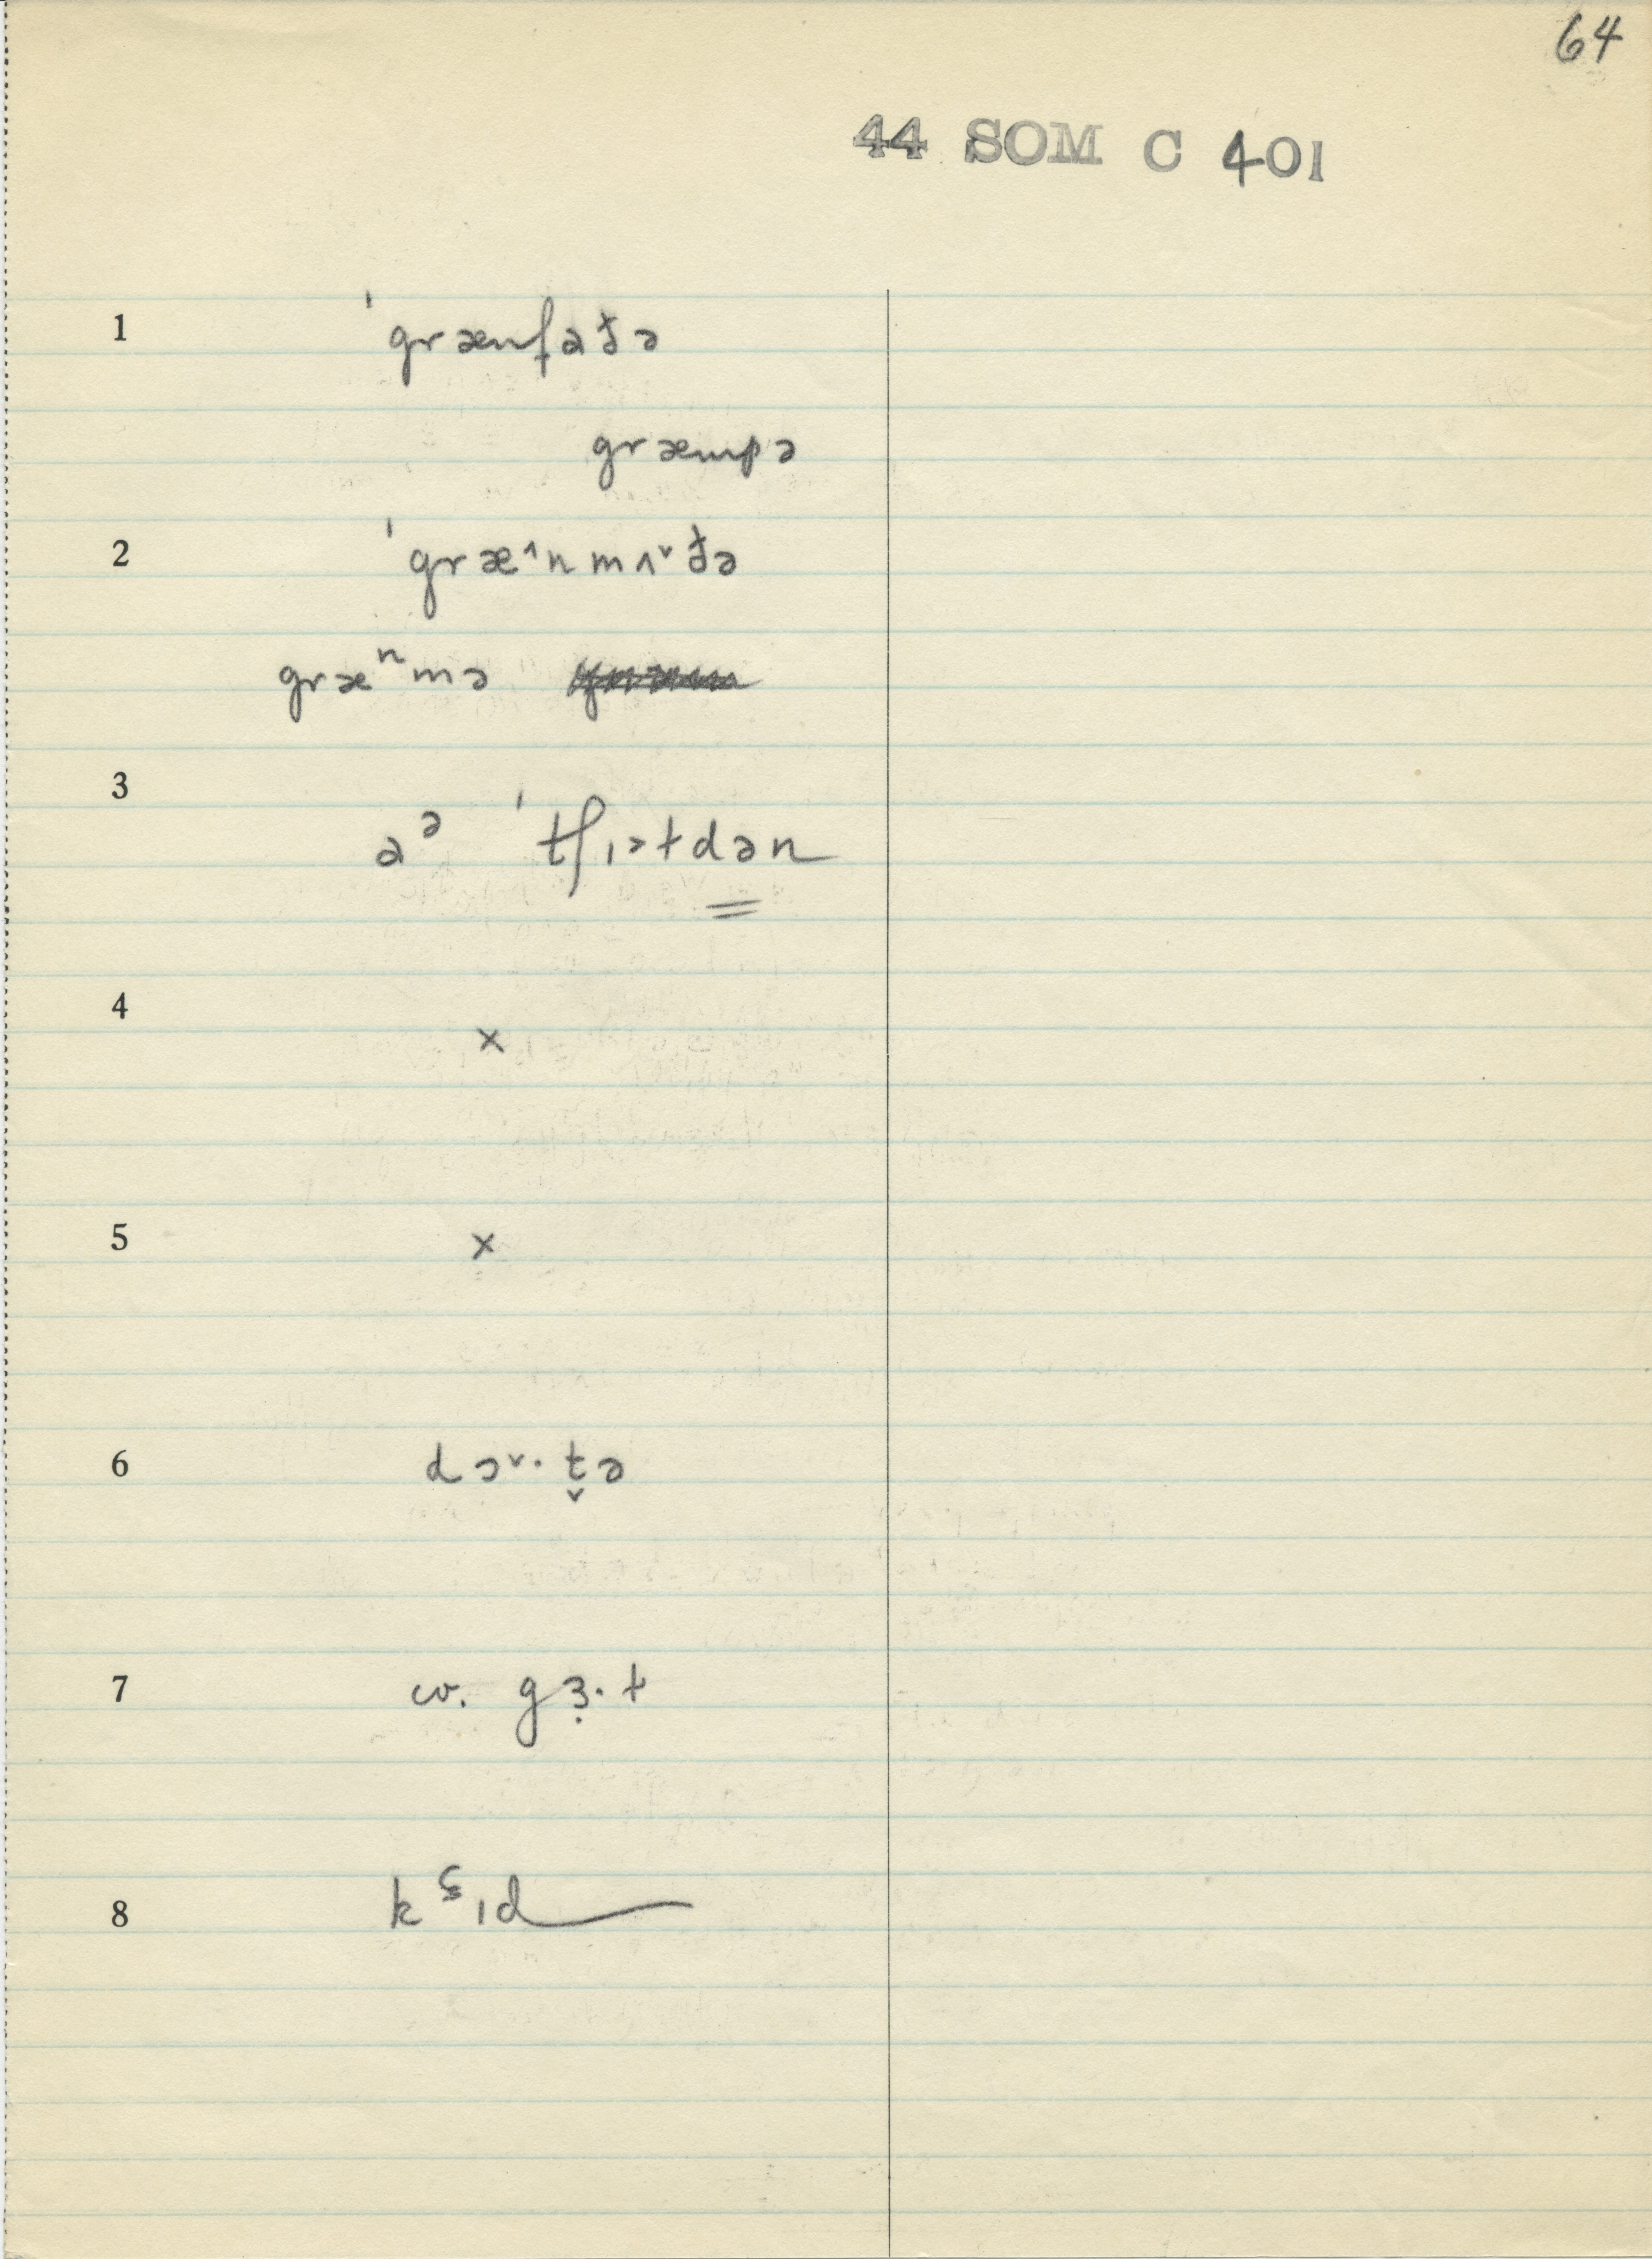 64
44 SOM C 401
1 ˈgrænfaðə
græmpə
2 ˈgræ˄nmʌ˅ðə
græⁿmə
3 aᵊ ˈtʃɪɫdən
4 ×
5 ×
6 dɔ˅· t̬ə
7 w. gɜ̣·ɫ
8 k